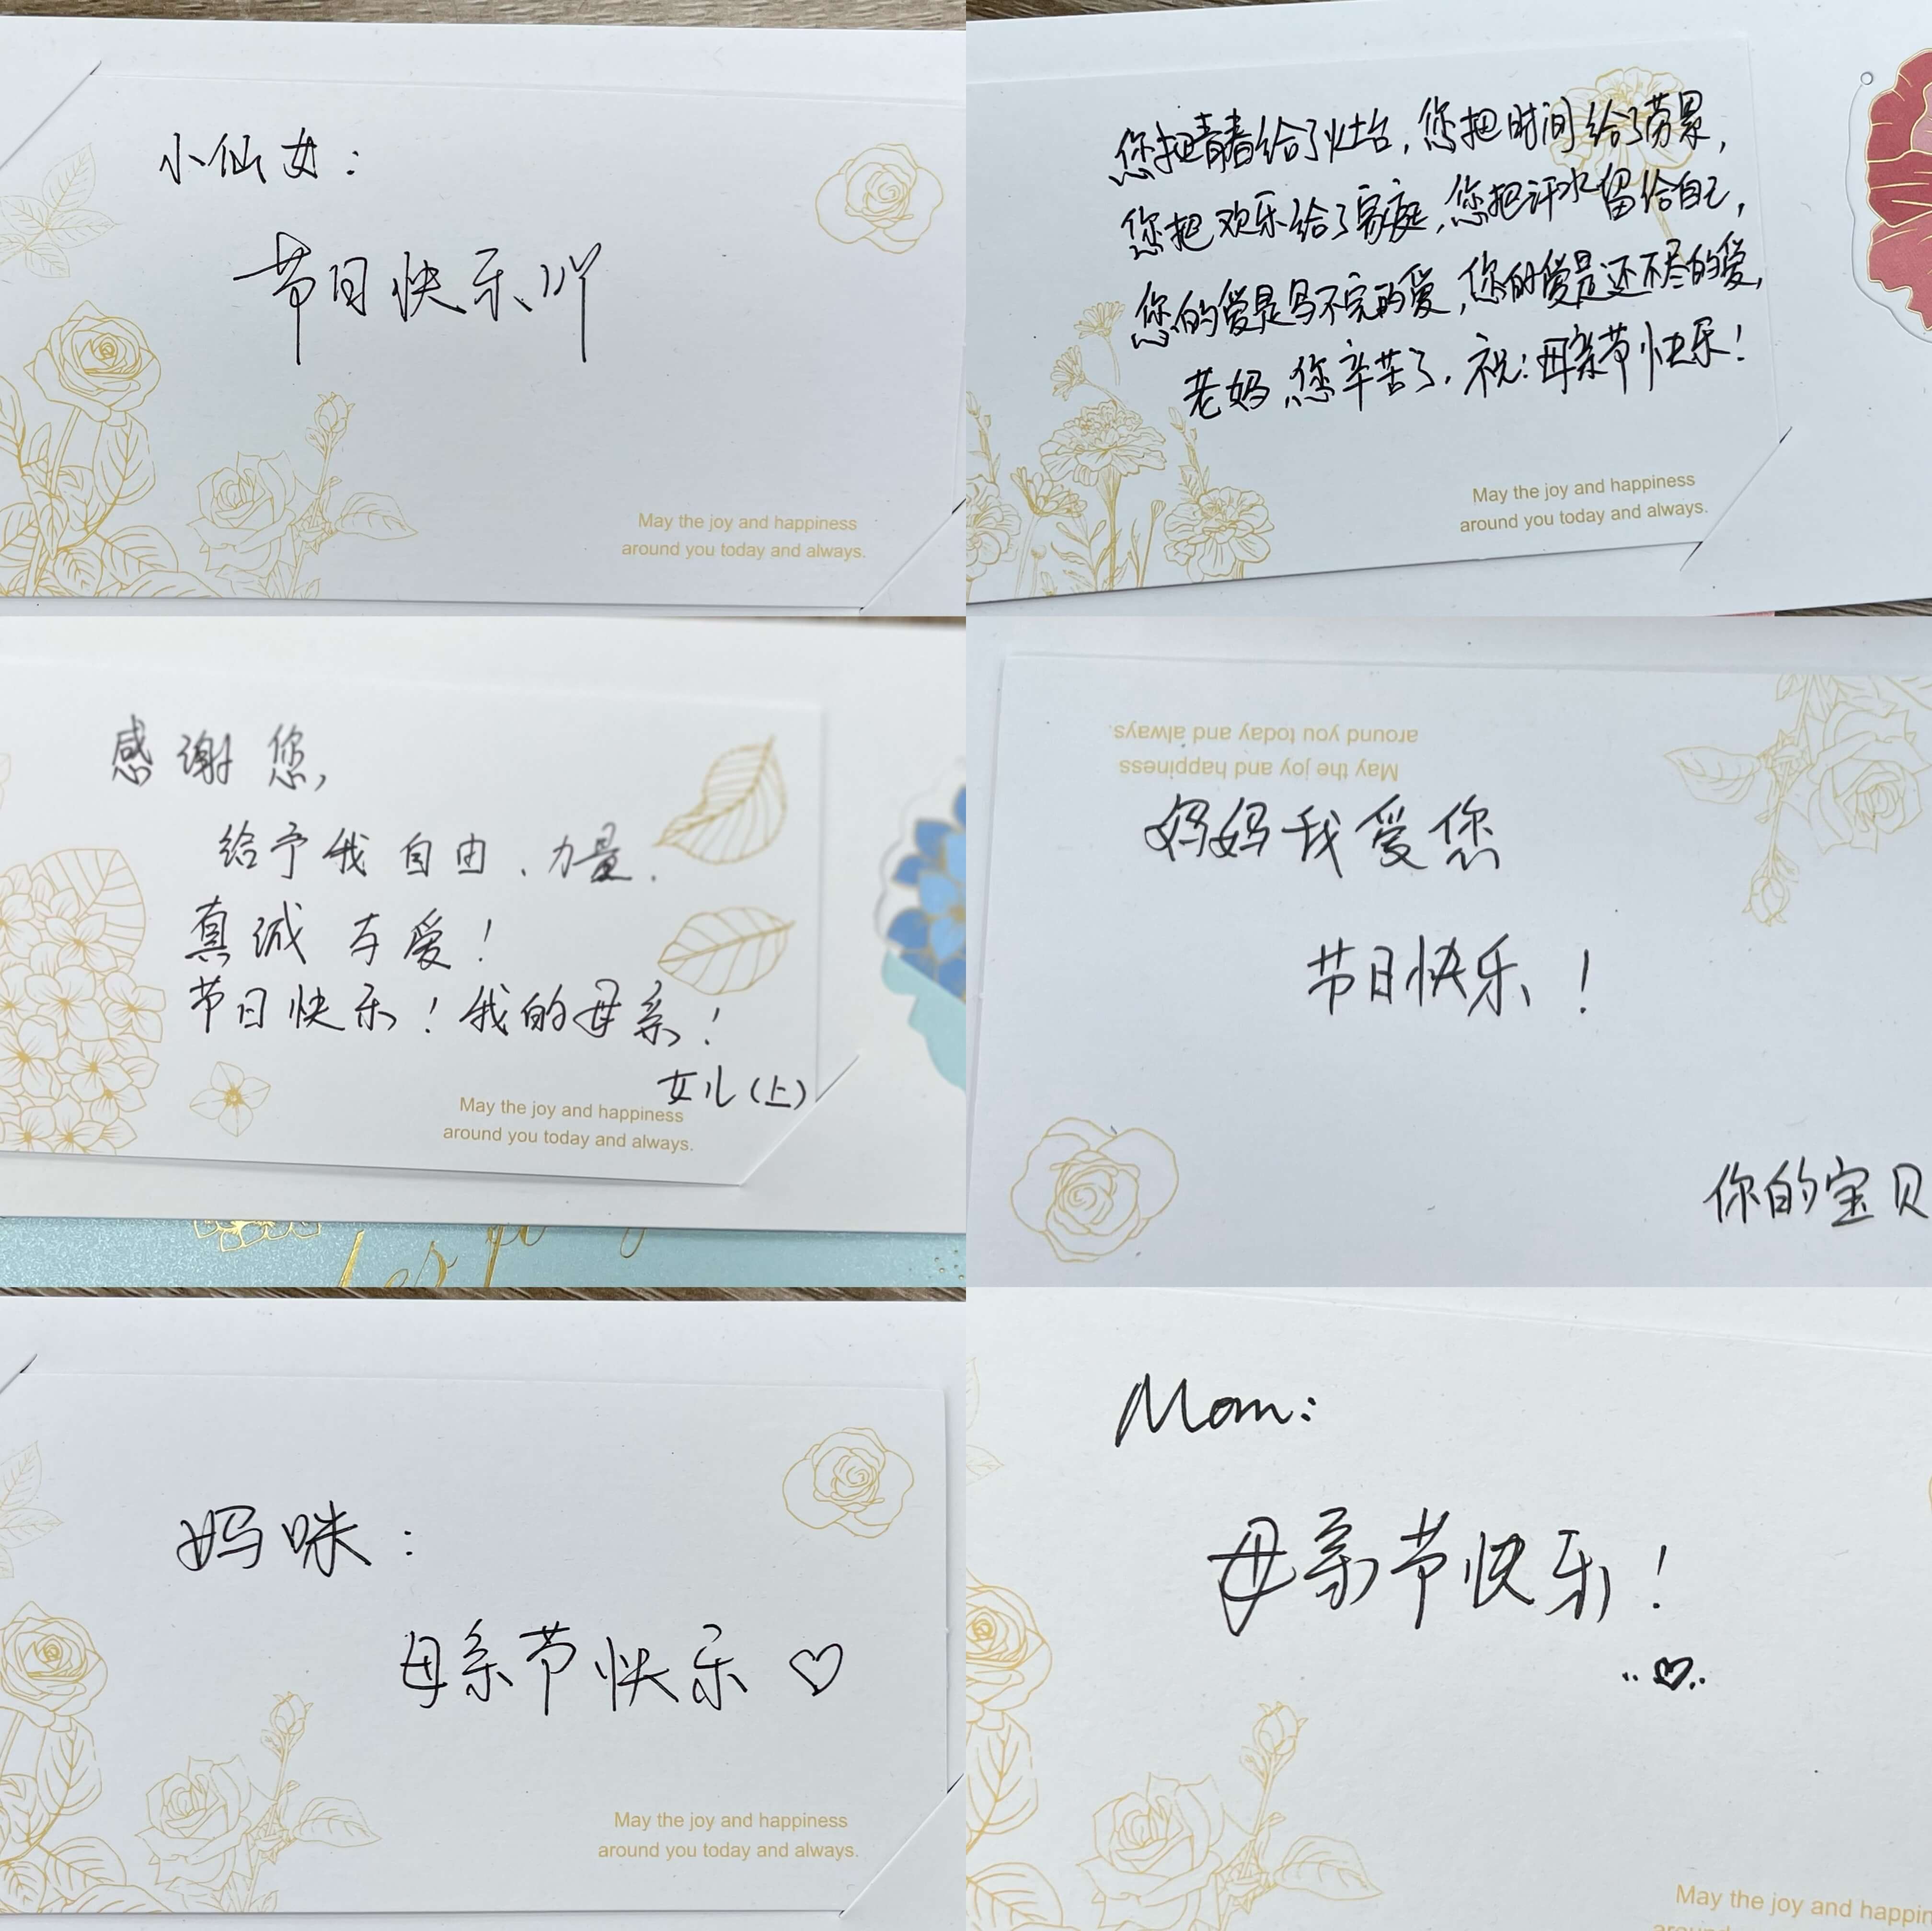 小仙女：
节日快乐丫
May the joy and happiness
around you today and always.
您把青春给了灶台，您把时间给了劳累，
您把欢乐给了家庭，您把汗水留给自己，
您的爱是写不完的爱，您的爱是还不尽的爱，
老妈，您辛苦了，祝：母亲节快乐！
May the joy and happiness
around you today and always.
感谢您，
给予我自由、力量、
真诚与爱！
节日快乐！我的母亲！
女儿（上）
May the joy and happiness
around you today and always.
May the joy and happiness
around you today and always.
妈妈我爱您
节日快乐！
你的宝贝
妈咪：
母亲节快乐♡
May the joy and happiness
around you today and always.
Mom:
母亲节快乐！
May the joy and happin